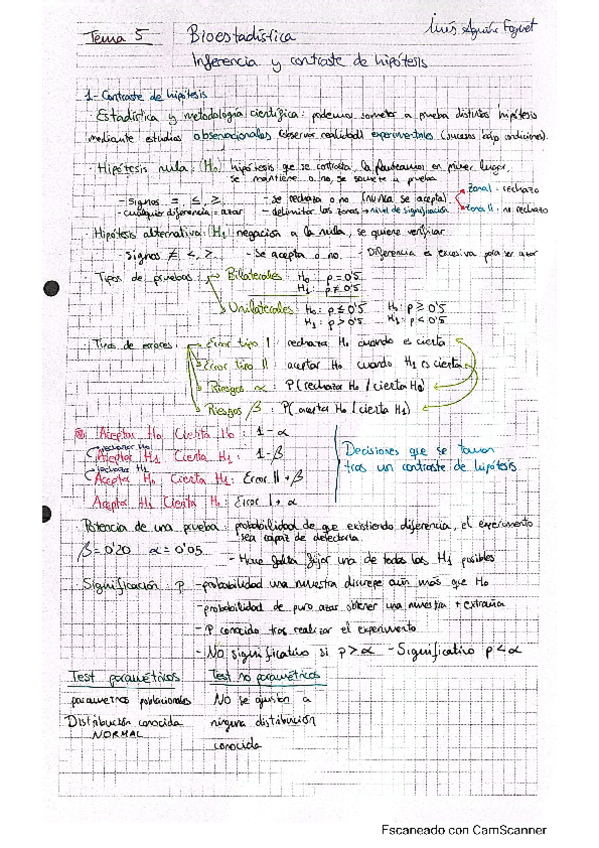 Tema 5 Bioestadística
Inés Aguirre
Inferencia y contraste de hipótesis
1- Contraste de hipótesis
Estadística y metodología científica: podemos someter a prueba distintas hipótesis
mediante estudios observacionales (observar realidad) experimentales (sucesos bajo condiciones).
- Hipótesis nula: (H0) hipótesis que se contrasta, la planteamos en primer lugar,
se mantiene o no, se somete a prueba
- signos =, ≤, ≥. - se rechaza o no (nunca se acepta)
zona I - rechazo
- cualquier diferencia = azar - delimitar las zonas → nivel de significación zona II - no rechazo
- Hipótesis alternativa: (H1 negación a la nula, se quiere verificar
- Signos ≠, <, > - Se acepta o no - Diferencia es excesiva para ser azar
Tipos de pruebas Bilaterales H0: p = 0'5
H1: p ≠ 0'5
Unilaterales: H0: p ≤ 0'5 H0: p ≥ 0'5
H1: p > 0'5 H1: p < 0'5
Tipos de errores. Error tipo I: rechazar H0 cuando es cierta
Error tipo II: aceptar H0 cuando H1 es cierta
Riesgos α: P(rechazar H0 / cierta H0)
Riesgos β: P(aceptar H0 / cierta H1)
Aceptar H0 Cierta H0: 1-α
rechazar H0
Aceptar H1 Cierta H1: 1-β
Decisiones que se toman
rechazar H1
tras un contraste de hipótesis
Acepta H0 Cierta H1: Error II + β
Acepta H1 Cierta H0: Error I + α
Potencia de una prueba: probabilidad de que existiendo diferencia, el experimento
sea capaz de detectarla
β = 0'20 α = 0'05
- Hace falta fijar una de todas las H1 posibles
Significación: p - probabilidad una muestra discrepe aún más que H0
- probabilidad de puro azar obtener una muestra + extraña
- P conocido tras realizar el experimento
- No significativo si p > α - Significativo p < α
Test paramétricos Test no paramétricos
parámetros poblacionales No se ajustan a
Distribución conocida ninguna distribución
NORMAL
conocida
Escaneado con CamScanner